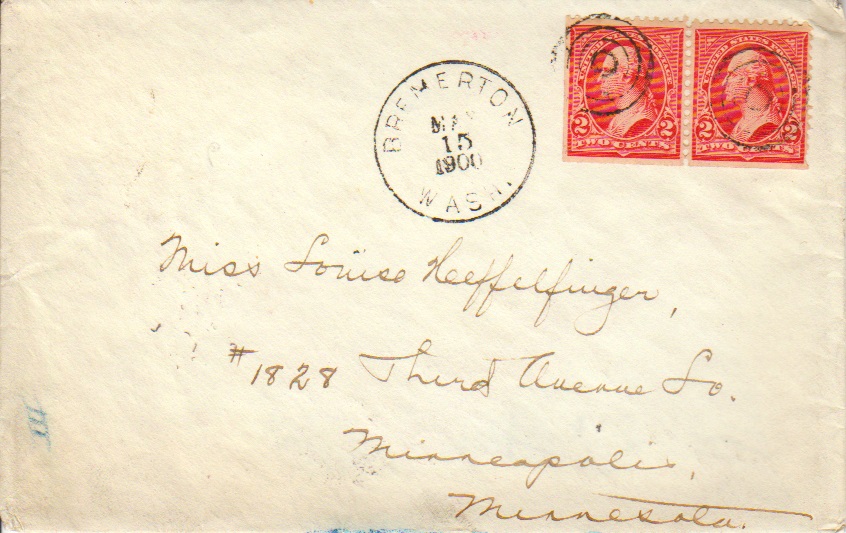 BREMERTON
MAY
15
1900
WASH.
UNITED STATES POSTAGE UNITED STATES POSTAGE
2 2 2 2
TWO CENTS TWO CENTS
Miss Louise Heffelfinger,
#1828 Third Avenue So.
Minneapolis,
Minnesota.